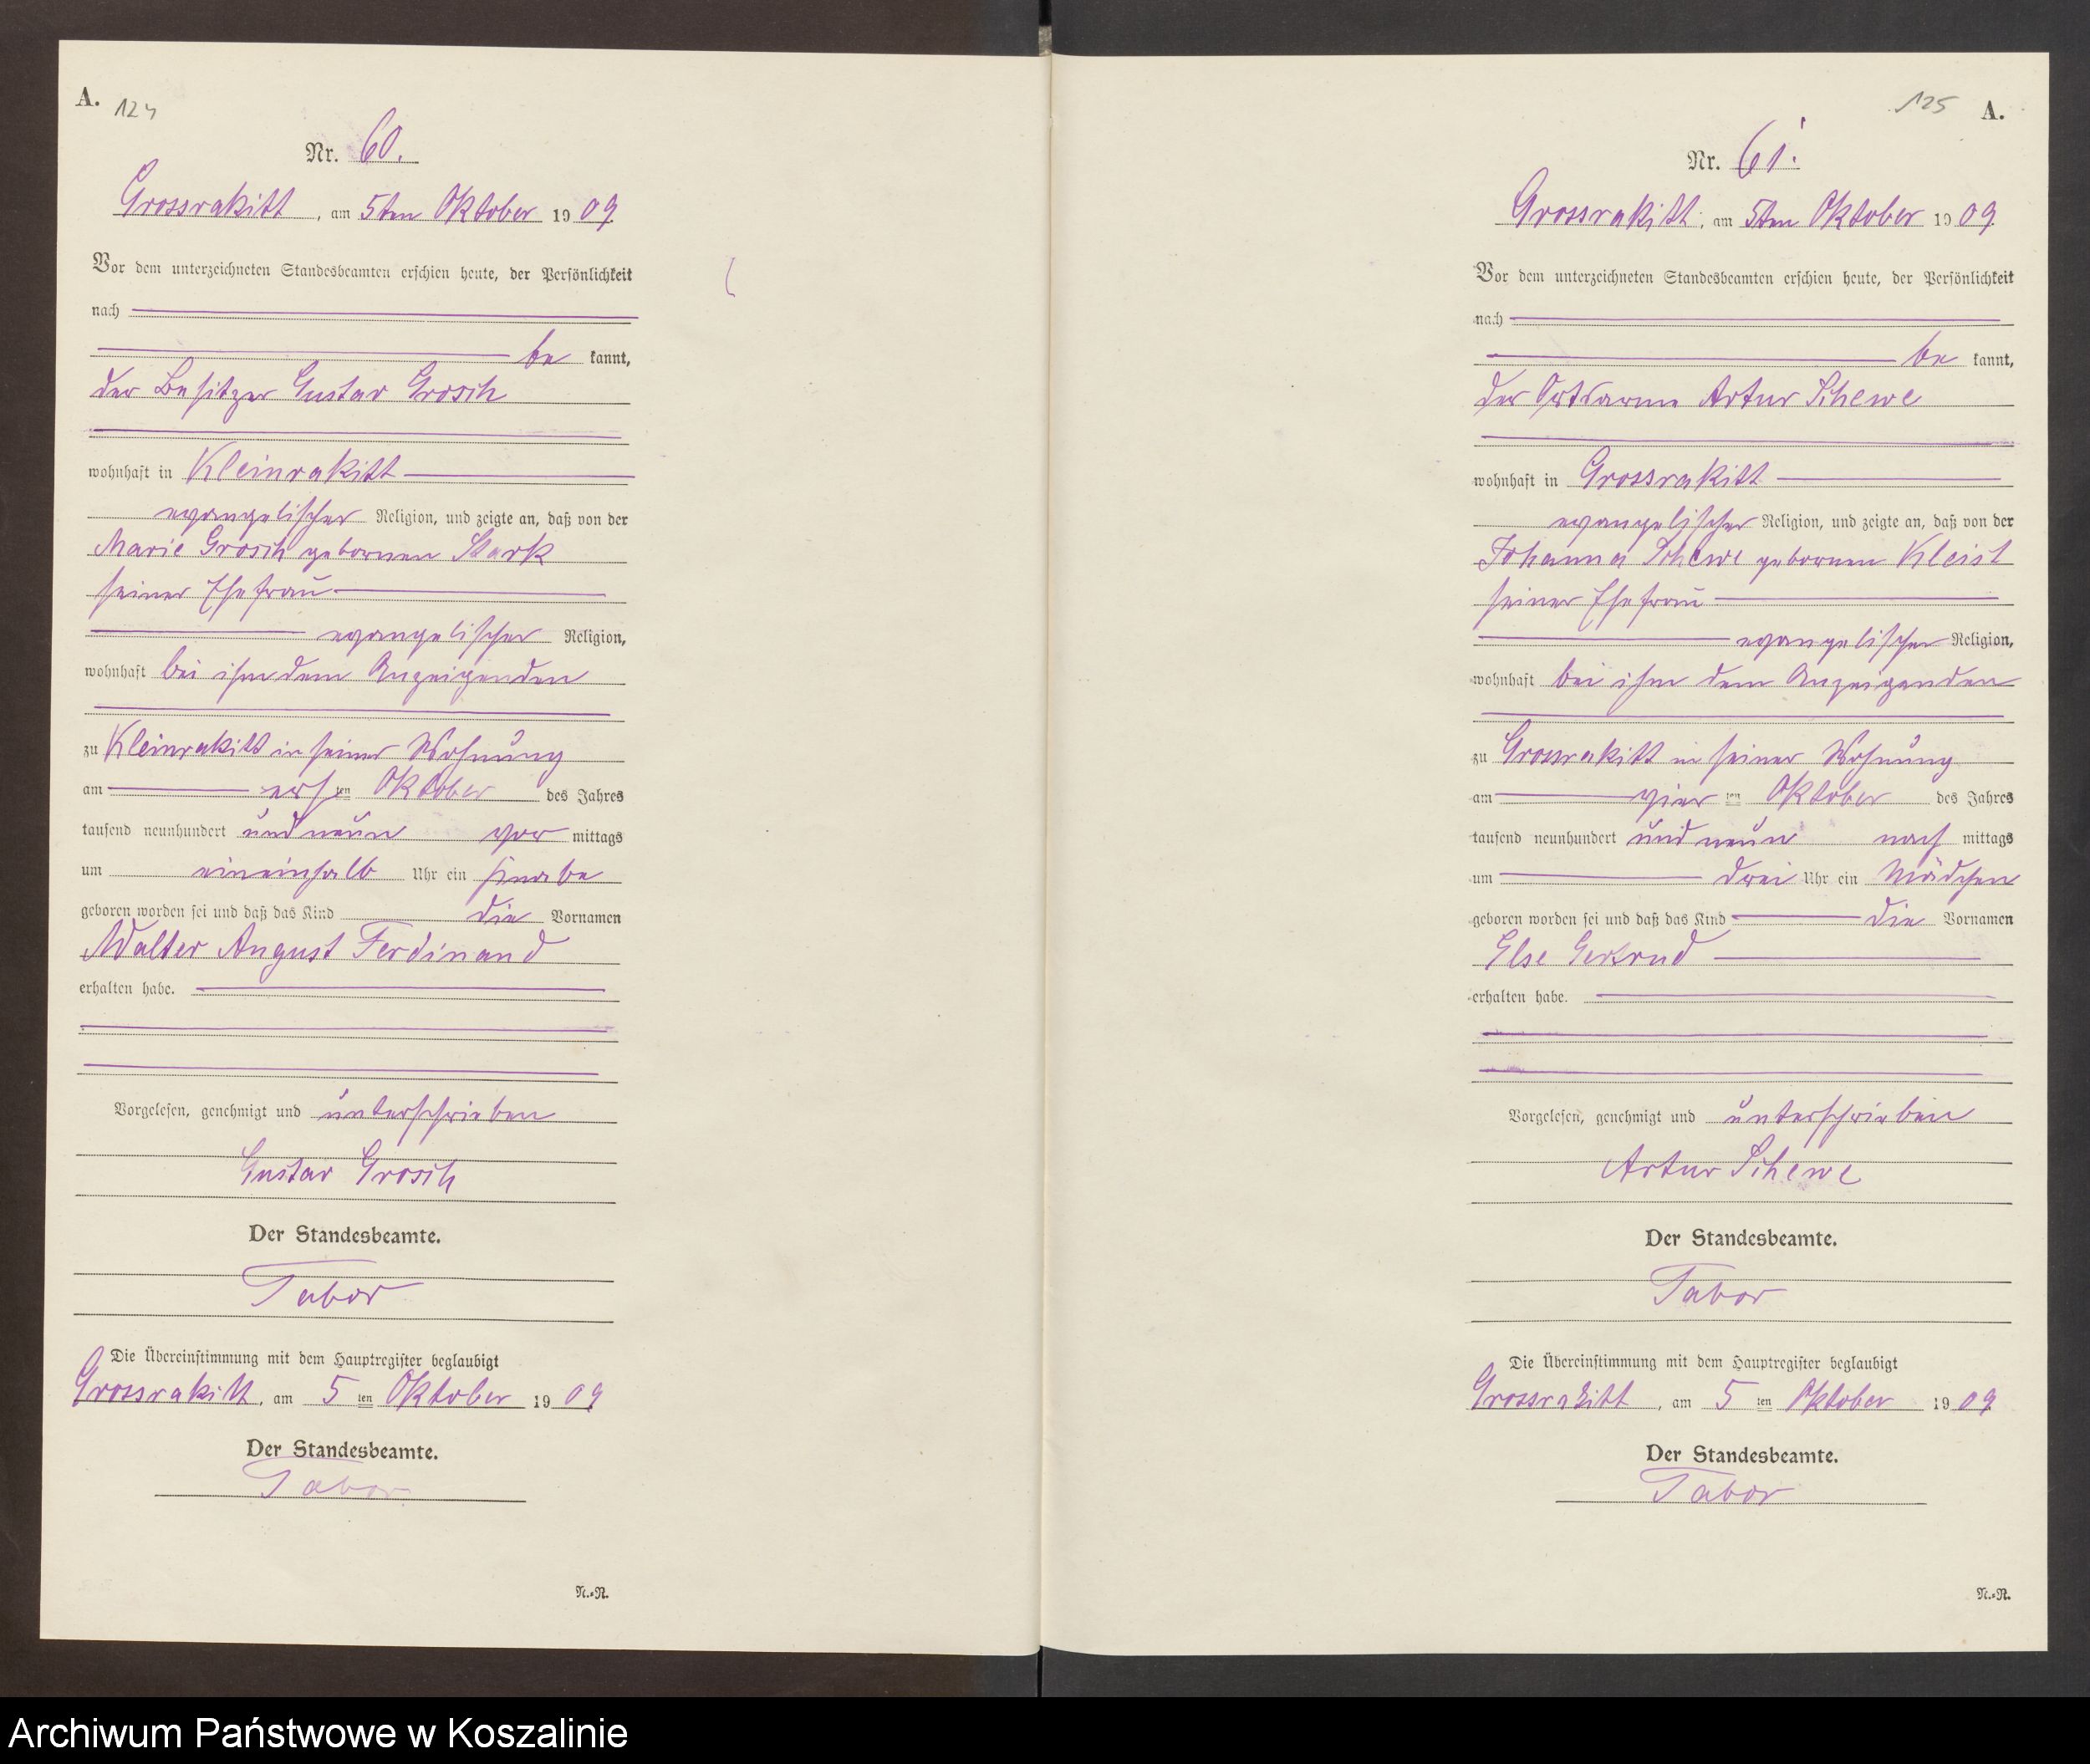 A. 124
Nr. 60.
Grossrakitt, am 5ten Oktober 1909.
Vor dem unterzeichneten Standesbeamten erschien heute, der Persönlichkeit
nach
be kannt,
der Besitzer Gustav Grosch
wohnhaft in Kleinrakitt
evangelischer Religion, und zeigte an, daß von der
Marie Grosch gebornen Stark
seiner Ehefrau
evangelischer Religion,
wohnhaft bei ihm dem Anzeigenden
zu Kleinrakitt in seiner Wohnung
am ersten Oktober des Jahres
tausend neunhundert und neun vor mittags
um eineinhalb Uhr ein Knabe
geboren worden sei und daß das Kind die Vornamen
Walter August Ferdinand
erhalten habe.
Vorgelesen, genehmigt und unterschrieben
Gustav Grosch
Der Standesbeamte.
Tabor
Die Übereinstimmung mit dem Hauptregister beglaubigt
Grossrakitt, am 5 ten Oktober 1909.
Der Standesbeamte.
Tabor
N.=R.
125 A.
Nr. 61.
Grossrakitt, am 5ten Oktober 1909.
Vor dem unterzeichneten Standesbeamten erschien heute, der Persönlichkeit
nach
be kannt,
der Ortsarme Artur Schewe
wohnhaft in Grossrakitt
evangelischer Religion, und zeigte an, daß von der
Johanna Schewe gebornen Kleist
seiner Ehefrau
evangelischer Religion,
wohnhaft bei ihm dem Anzeigenden
zu Grossrakitt in seiner Wohnung
am vier ten Oktober des Jahres
tausend neunhundert und neun nach mittags
um drei Uhr ein Mädchen
geboren worden sei und daß das Kind die Vornamen
Else Gertrud
erhalten habe.
Vorgelesen, genehmigt und unterschrieben
Artur Schewe
Der Standesbeamte.
Tabor
Die Übereinstimmung mit dem Hauptregister beglaubigt
Grossrakitt, am 5 ten Oktober 1909.
Der Standesbeamte.
Tabor
N.=R.
Archiwum Państwowe w Koszalinie